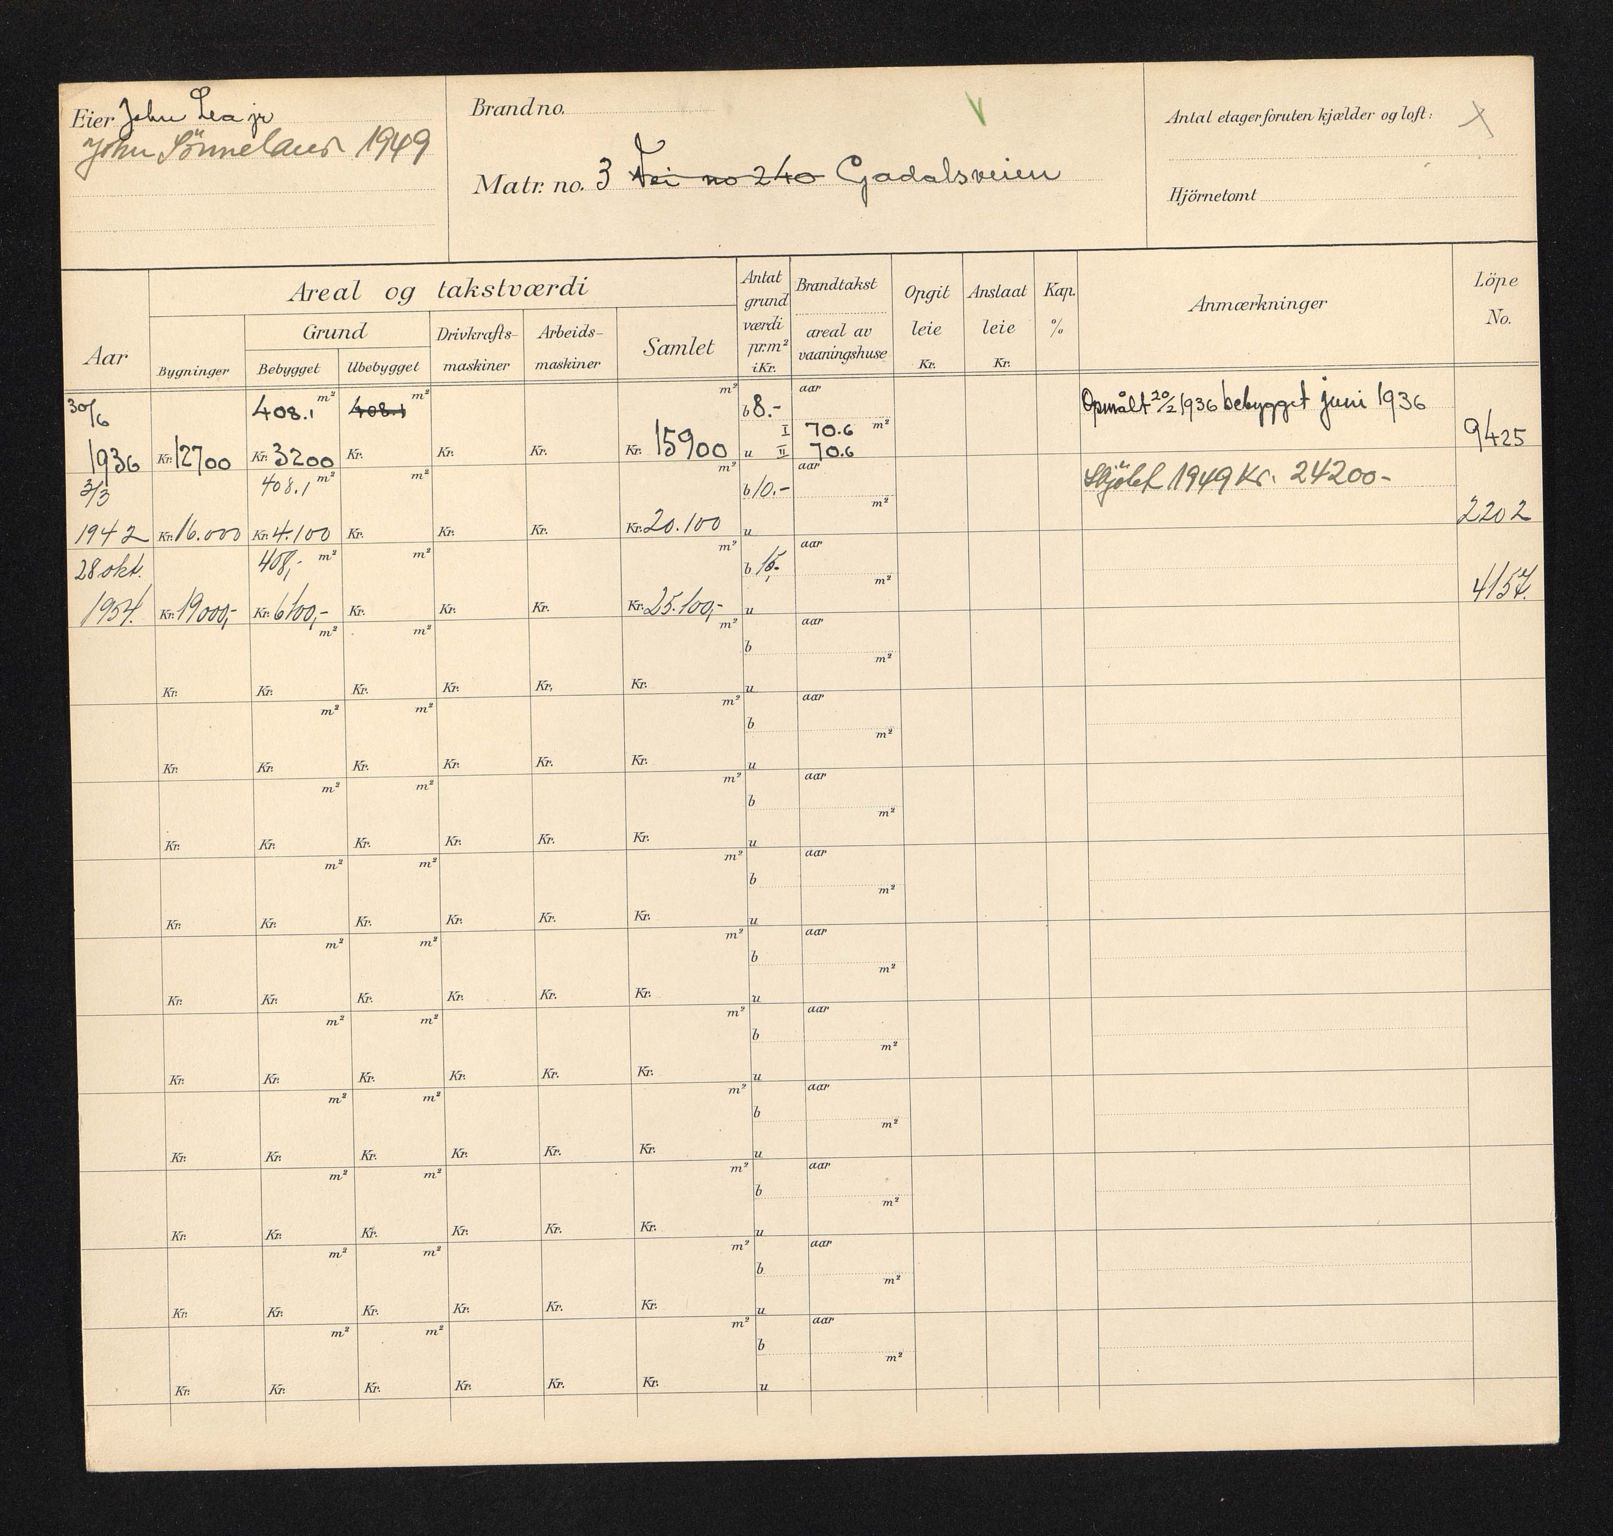 Eier John Lea jr
John Sönneland 1949
Brand no.
Matr. no. 3 Vei no 240 Gadalsveien
Antal etager foruten kjælder og loft:
Hjörnetomt
Aar
Areal og takstværdi
Bygninger
Grund
Bebygget
Ubebygget
Drivkrafts-
maskiner
Arbeids-
maskiner
Samlet
Antat
grund
værdi
pr.m²
i Kr.
Brandtakst
areal av
vaaningshuse
Opgit
leie
Kr.
Anslaat
leie
Kr.
Kap.
%
Anmærkninger
Löpe
No.
30/6 408.1 m² 408.1 m² m² b 8.- aar Opmålt 20/2 1936 bebygget juni 1936
I 70.6 m²
1936 Kr. 12700 Kr. 3200 Kr. Kr. Kr. Kr. 15900 u II 70.6 9425
3/3 408.1 m² m² m² b 10.- aar Skjölet 1949 Kr. 24200-
m²
1942 Kr. 16.000 Kr. 4.100 Kr. Kr. Kr. Kr. 20.100 u 2202
28 okt. 408,- m² m² m² b 15,- aar
m²
1954. Kr. 19000,- Kr. 6100,- Kr. Kr. Kr. Kr. 25.100,- u 4157.
m² m² m² b aar
m²
Kr. Kr. Kr. Kr. Kr. Kr. u
m² m² m² b aar
m²
Kr. Kr. Kr. Kr. Kr. Kr. u
m² m² m² b aar
m²
Kr. Kr. Kr. Kr. Kr. Kr. u
m² m² m² b aar
m²
Kr. Kr. Kr. Kr. Kr. Kr. u
m² m² m² b aar
m²
Kr. Kr. Kr. Kr. Kr. Kr. u
m² m² m² b aar
m²
Kr. Kr. Kr. Kr. Kr. Kr. u
m² m² m² b aar
m²
Kr. Kr. Kr. Kr. Kr. Kr. u
m² m² m² b aar
m²
Kr. Kr. Kr. Kr. Kr. Kr. u
m² m² m² b aar
m²
Kr. Kr. Kr. Kr. Kr. Kr. u
m² m² m² b aar
m²
Kr. Kr. Kr. Kr. Kr. Kr. u